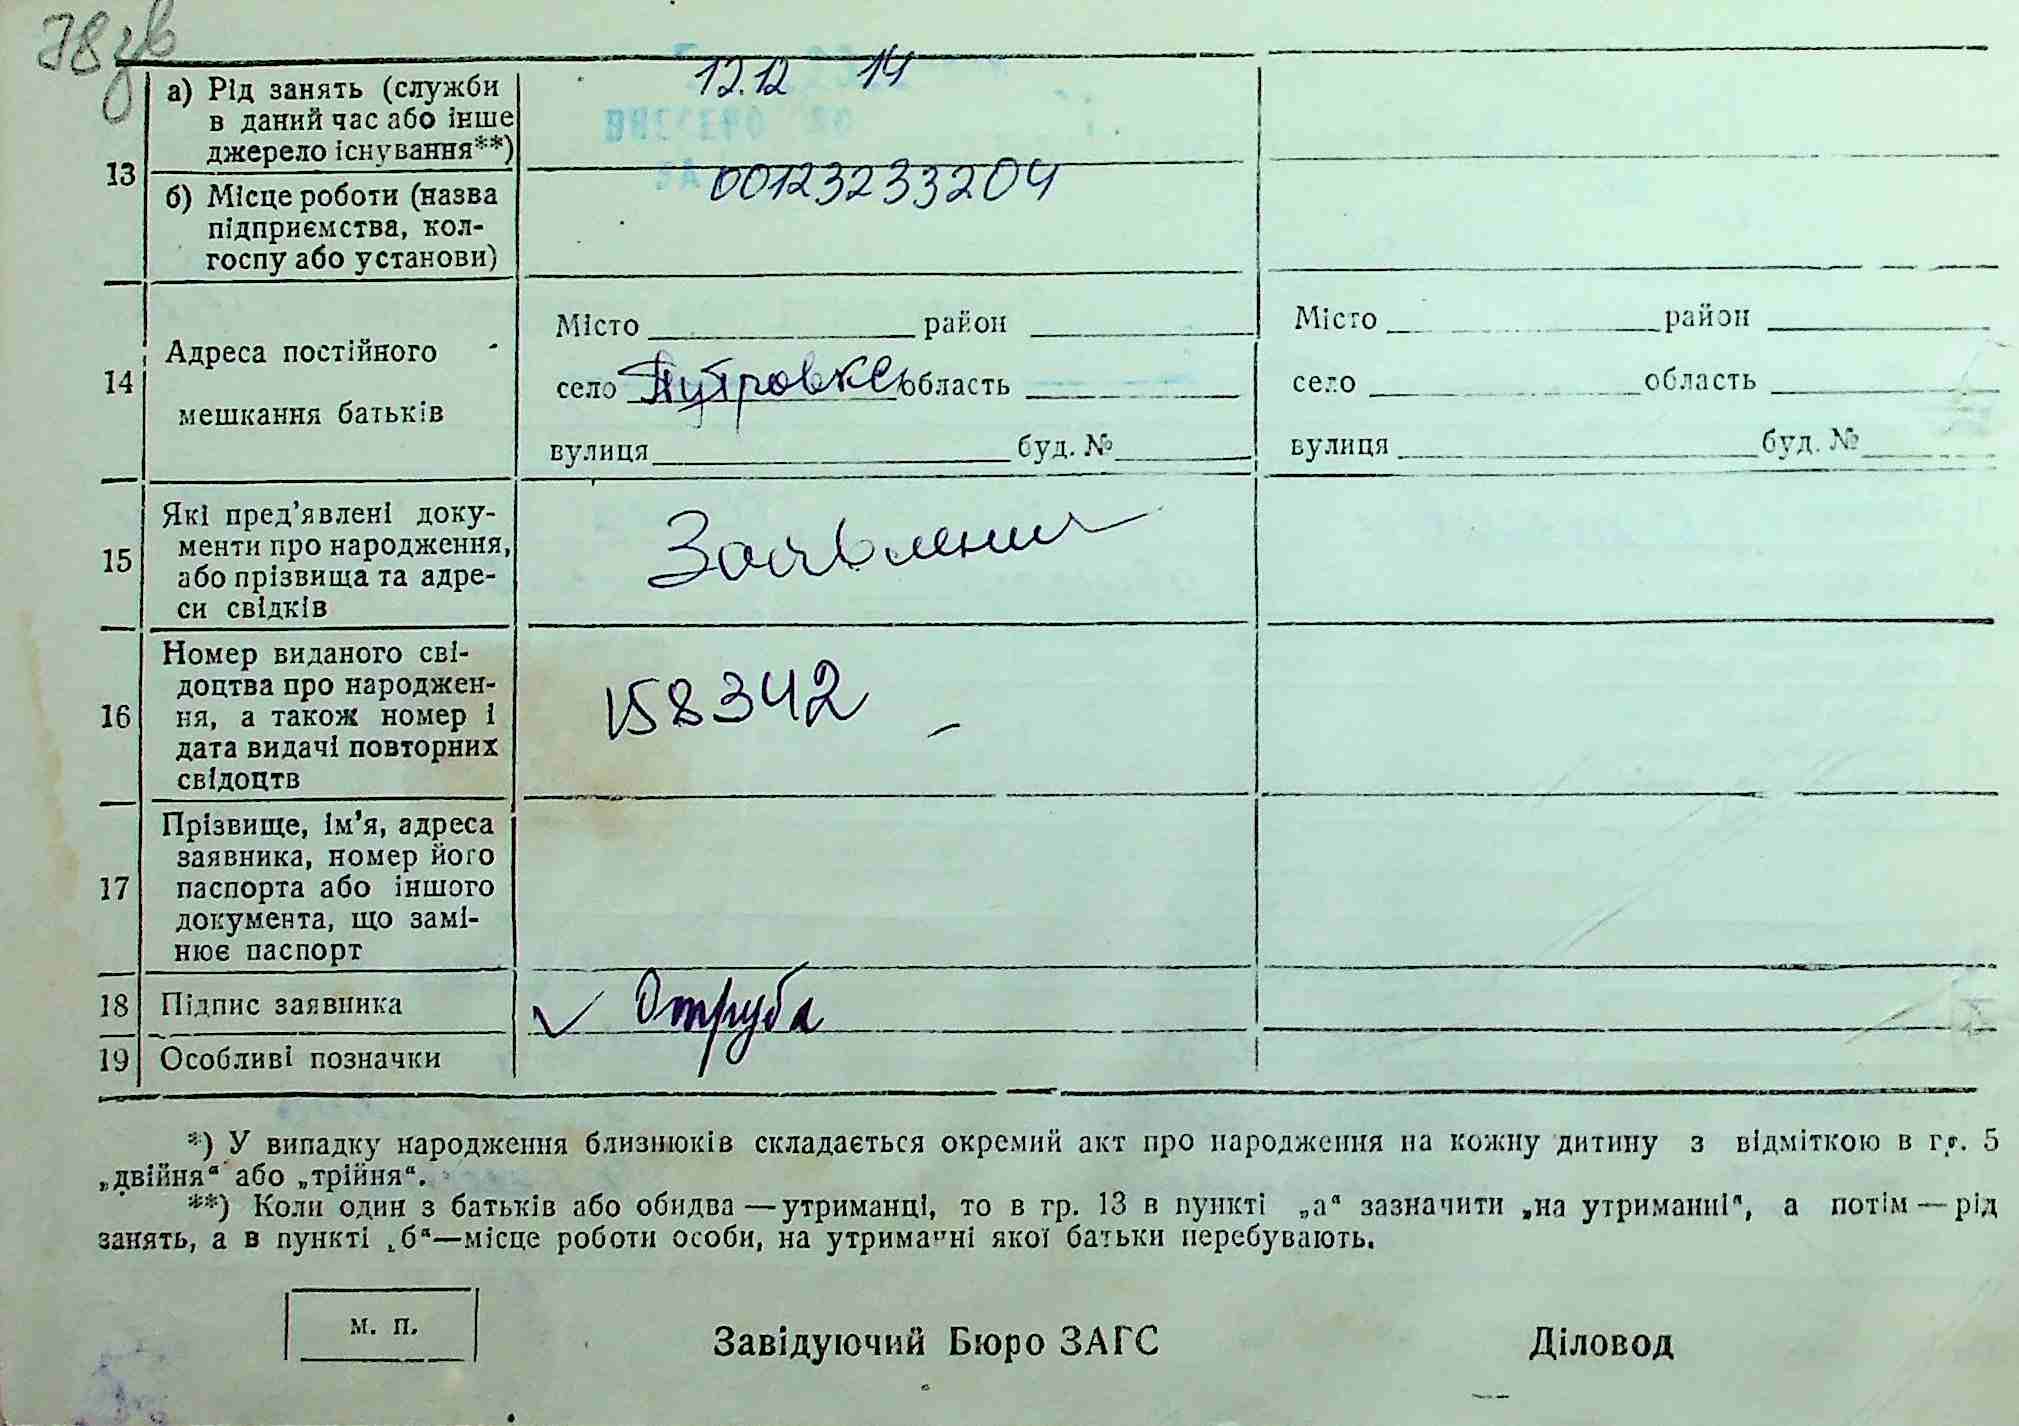 78 зв
13
а) Рід занять (служби
в даний час або інше
джерело існування**)
12.12 14
б) Місце роботи (назва
підприємства, кол-
госпу або установи)
00123233204
14
Адреса постійного
мешкання батьків
Місто район
село область
вулиця буд. №
Місто район
село область
вулиця буд. №
15
Які пред’явлені доку-
менти про народження,
або прізвища та адре-
си свідків
Заявление
16
Номер виданого сві-
доцтва про народжен-
ня, а також номер і
дата видачі повторних
свідоцтв
158342 –
17
Прізвище, ім’я, адреса
заявника, номер його
паспорта або іншого
документа, що замі-
нює паспорт
18 Підпис заявника
Отруба
19 Особливі позначки
*) У випадку народження близнюків складається окремий акт про народження на кожну дитину з відміткою в гр. 5
„двійня“ або „трійня“.
**) Коли один з батьків або обидва — утриманці, то в гр. 13 в пункті „а“ зазначити „на утриманні“, а потім — рід
занять, а в пункті „б“—місце роботи особи, на утриманні якої батьки перебувають.
м. п.
Завідуючий Бюро ЗАГС
Діловод